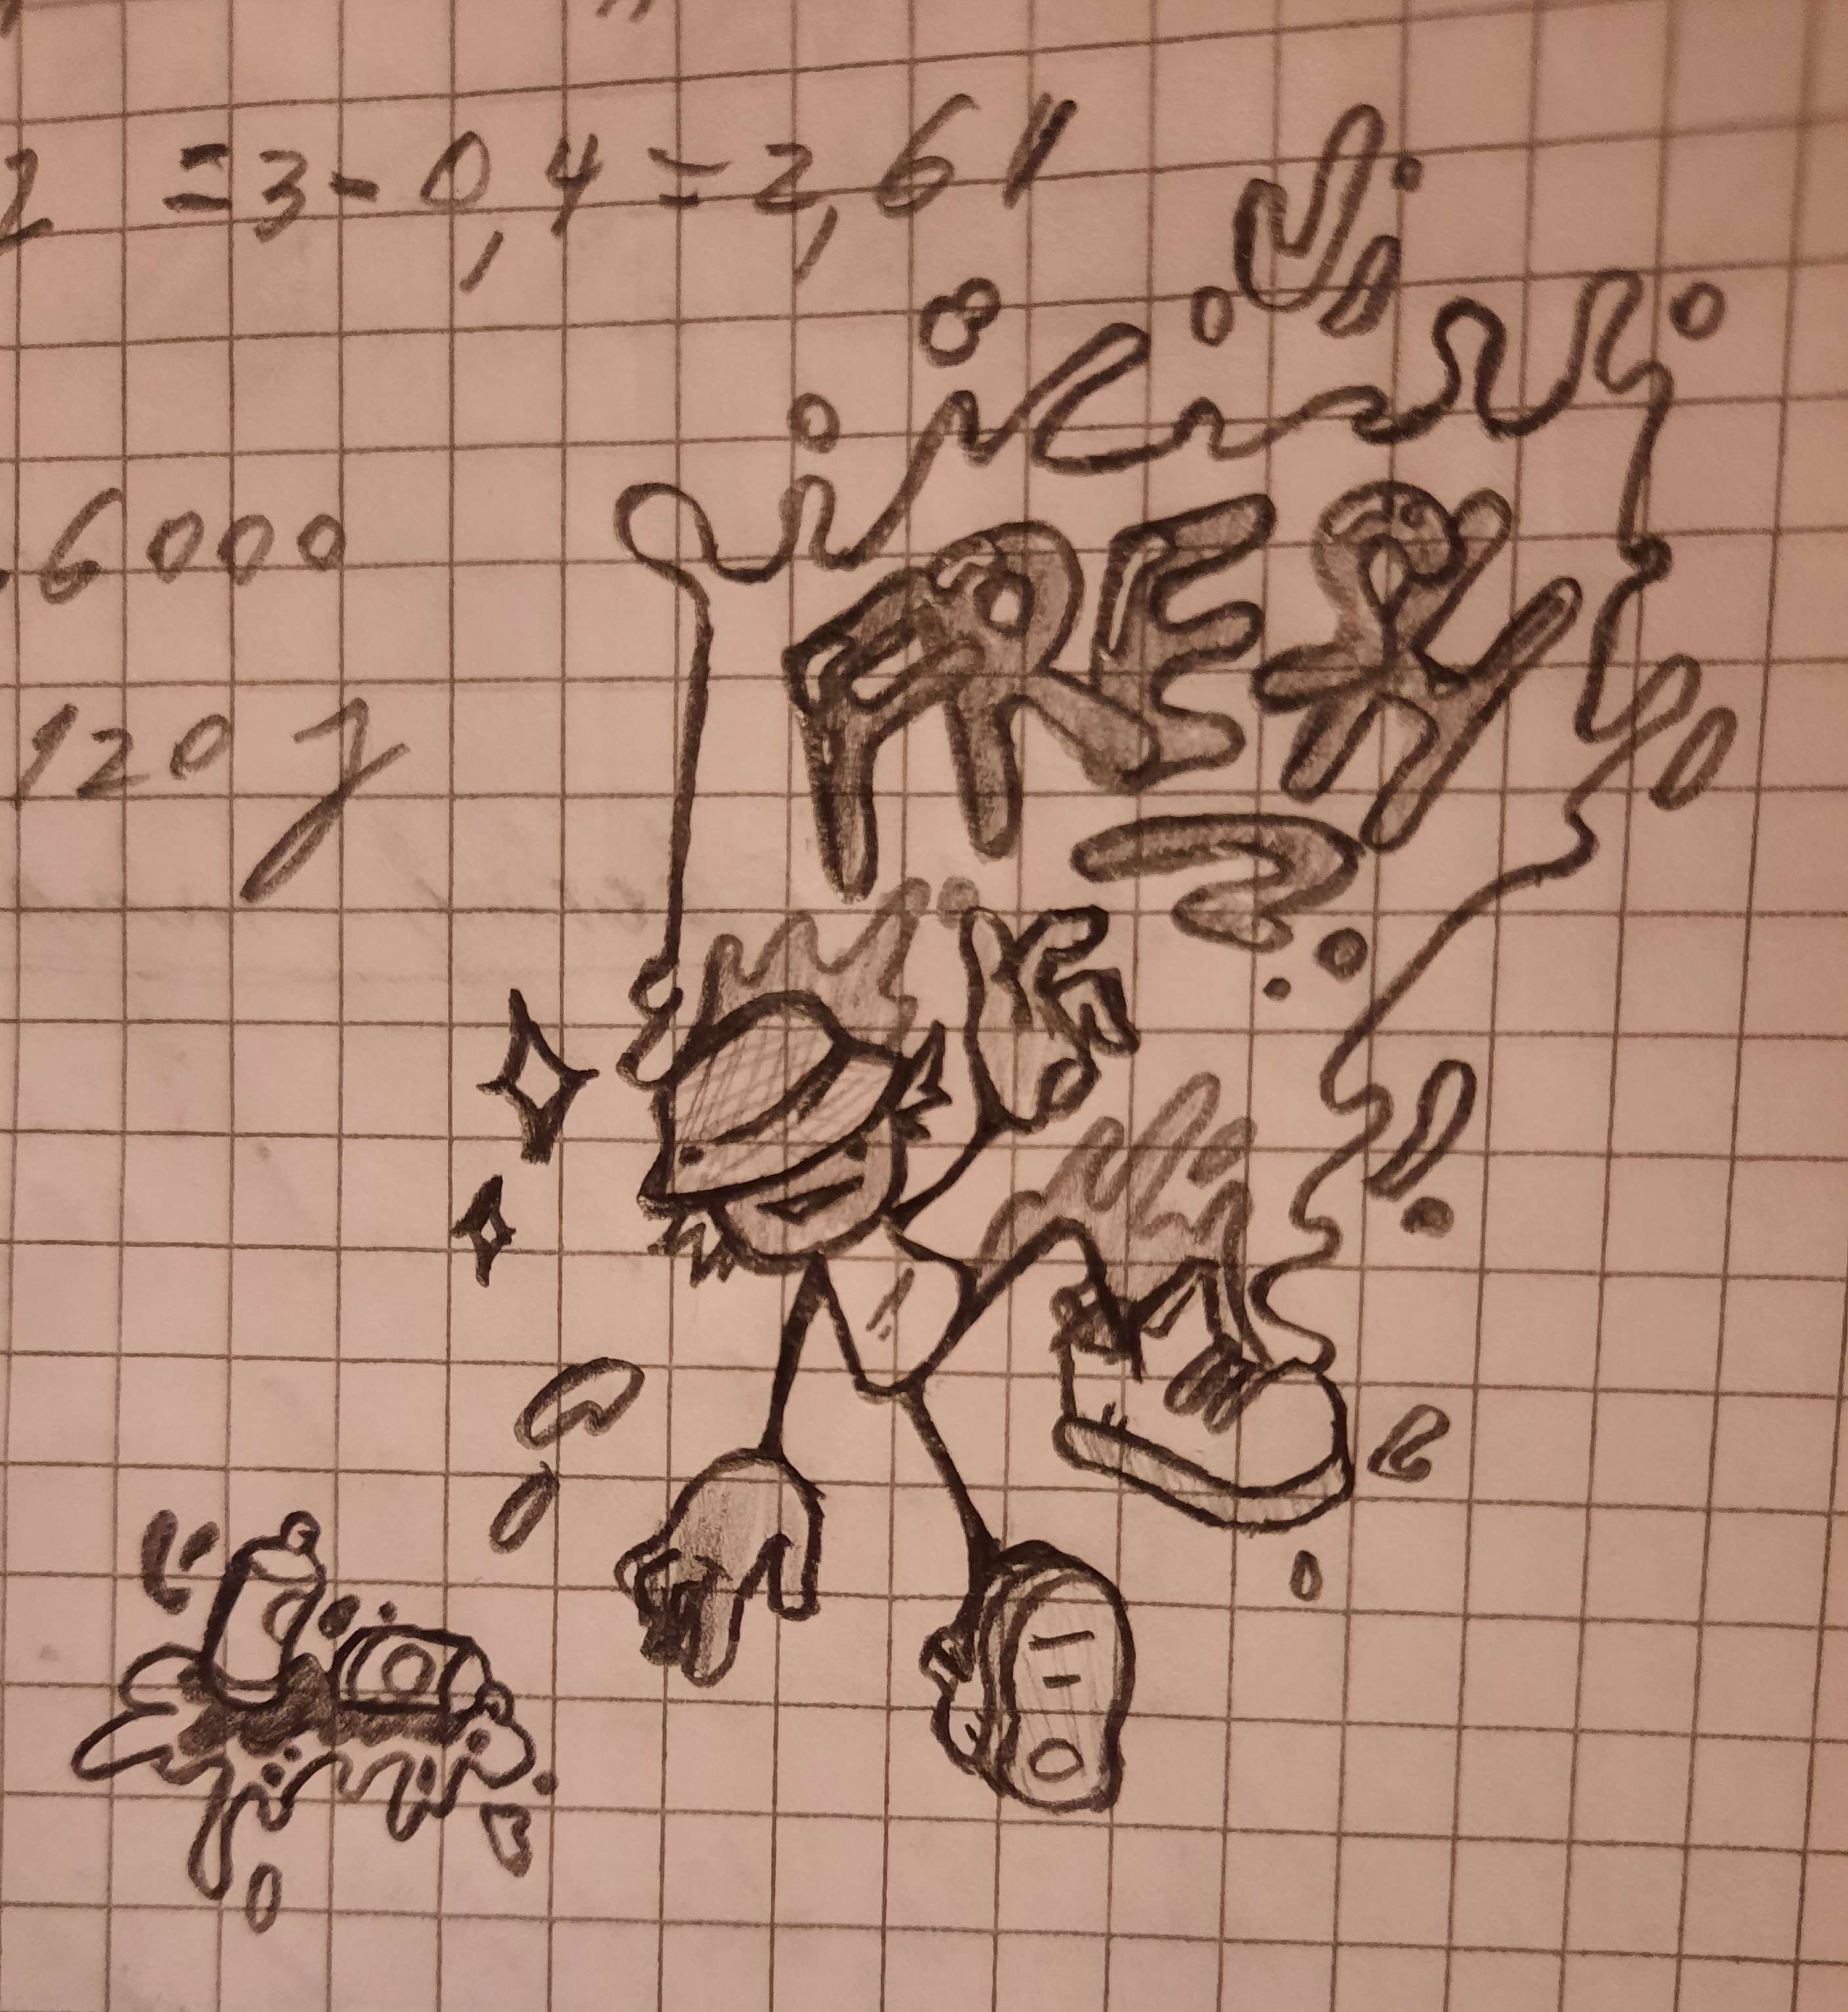 2 =3-0,4=2,6
.6000
120 J
FRESH